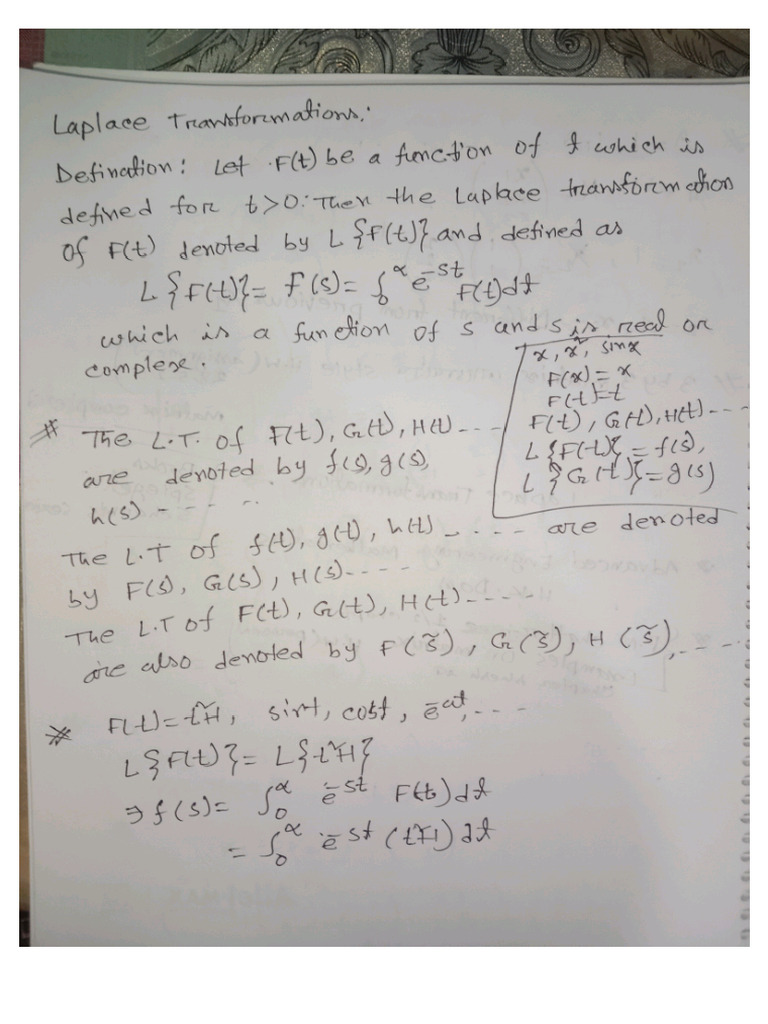 Laplace Transformations:
Defination: Let F(t) be a function of t which is
defined for t>0. Then the Laplace transformation
of F(t) denoted by L{F(t)} and defined as
L{F(t)} = f(s) = ∫₀^α e^-st F(t)dt
which is a function of s and s is real or
complexe.
x, x², sinx
F(x) = x
F(t)=t
F(t), G(t), H(t) ---
L{F(t)} = f(s),
L{G(t)} = g(s)
* The L.T. of F(t), G(t), H(t) ---
are denoted by f(s), g(s),
h(s) - - - -
The L.T of f(t), g(t), h(t) - - - - are denoted
by F(s), G(s), H(s) - - - -
The L.T of F(t), G(t), H(t) - - - - -
are also denoted by F(s̃), G(s̃), H(s̃), - - -
* F(t) = t²+1, sint, cost, e^-at, - - -
L{F(t)} = L{t²+1}
⇒ f(s) = ∫₀^α e^-st F(t)dt
= ∫₀^α e^-st (t²+1) dt